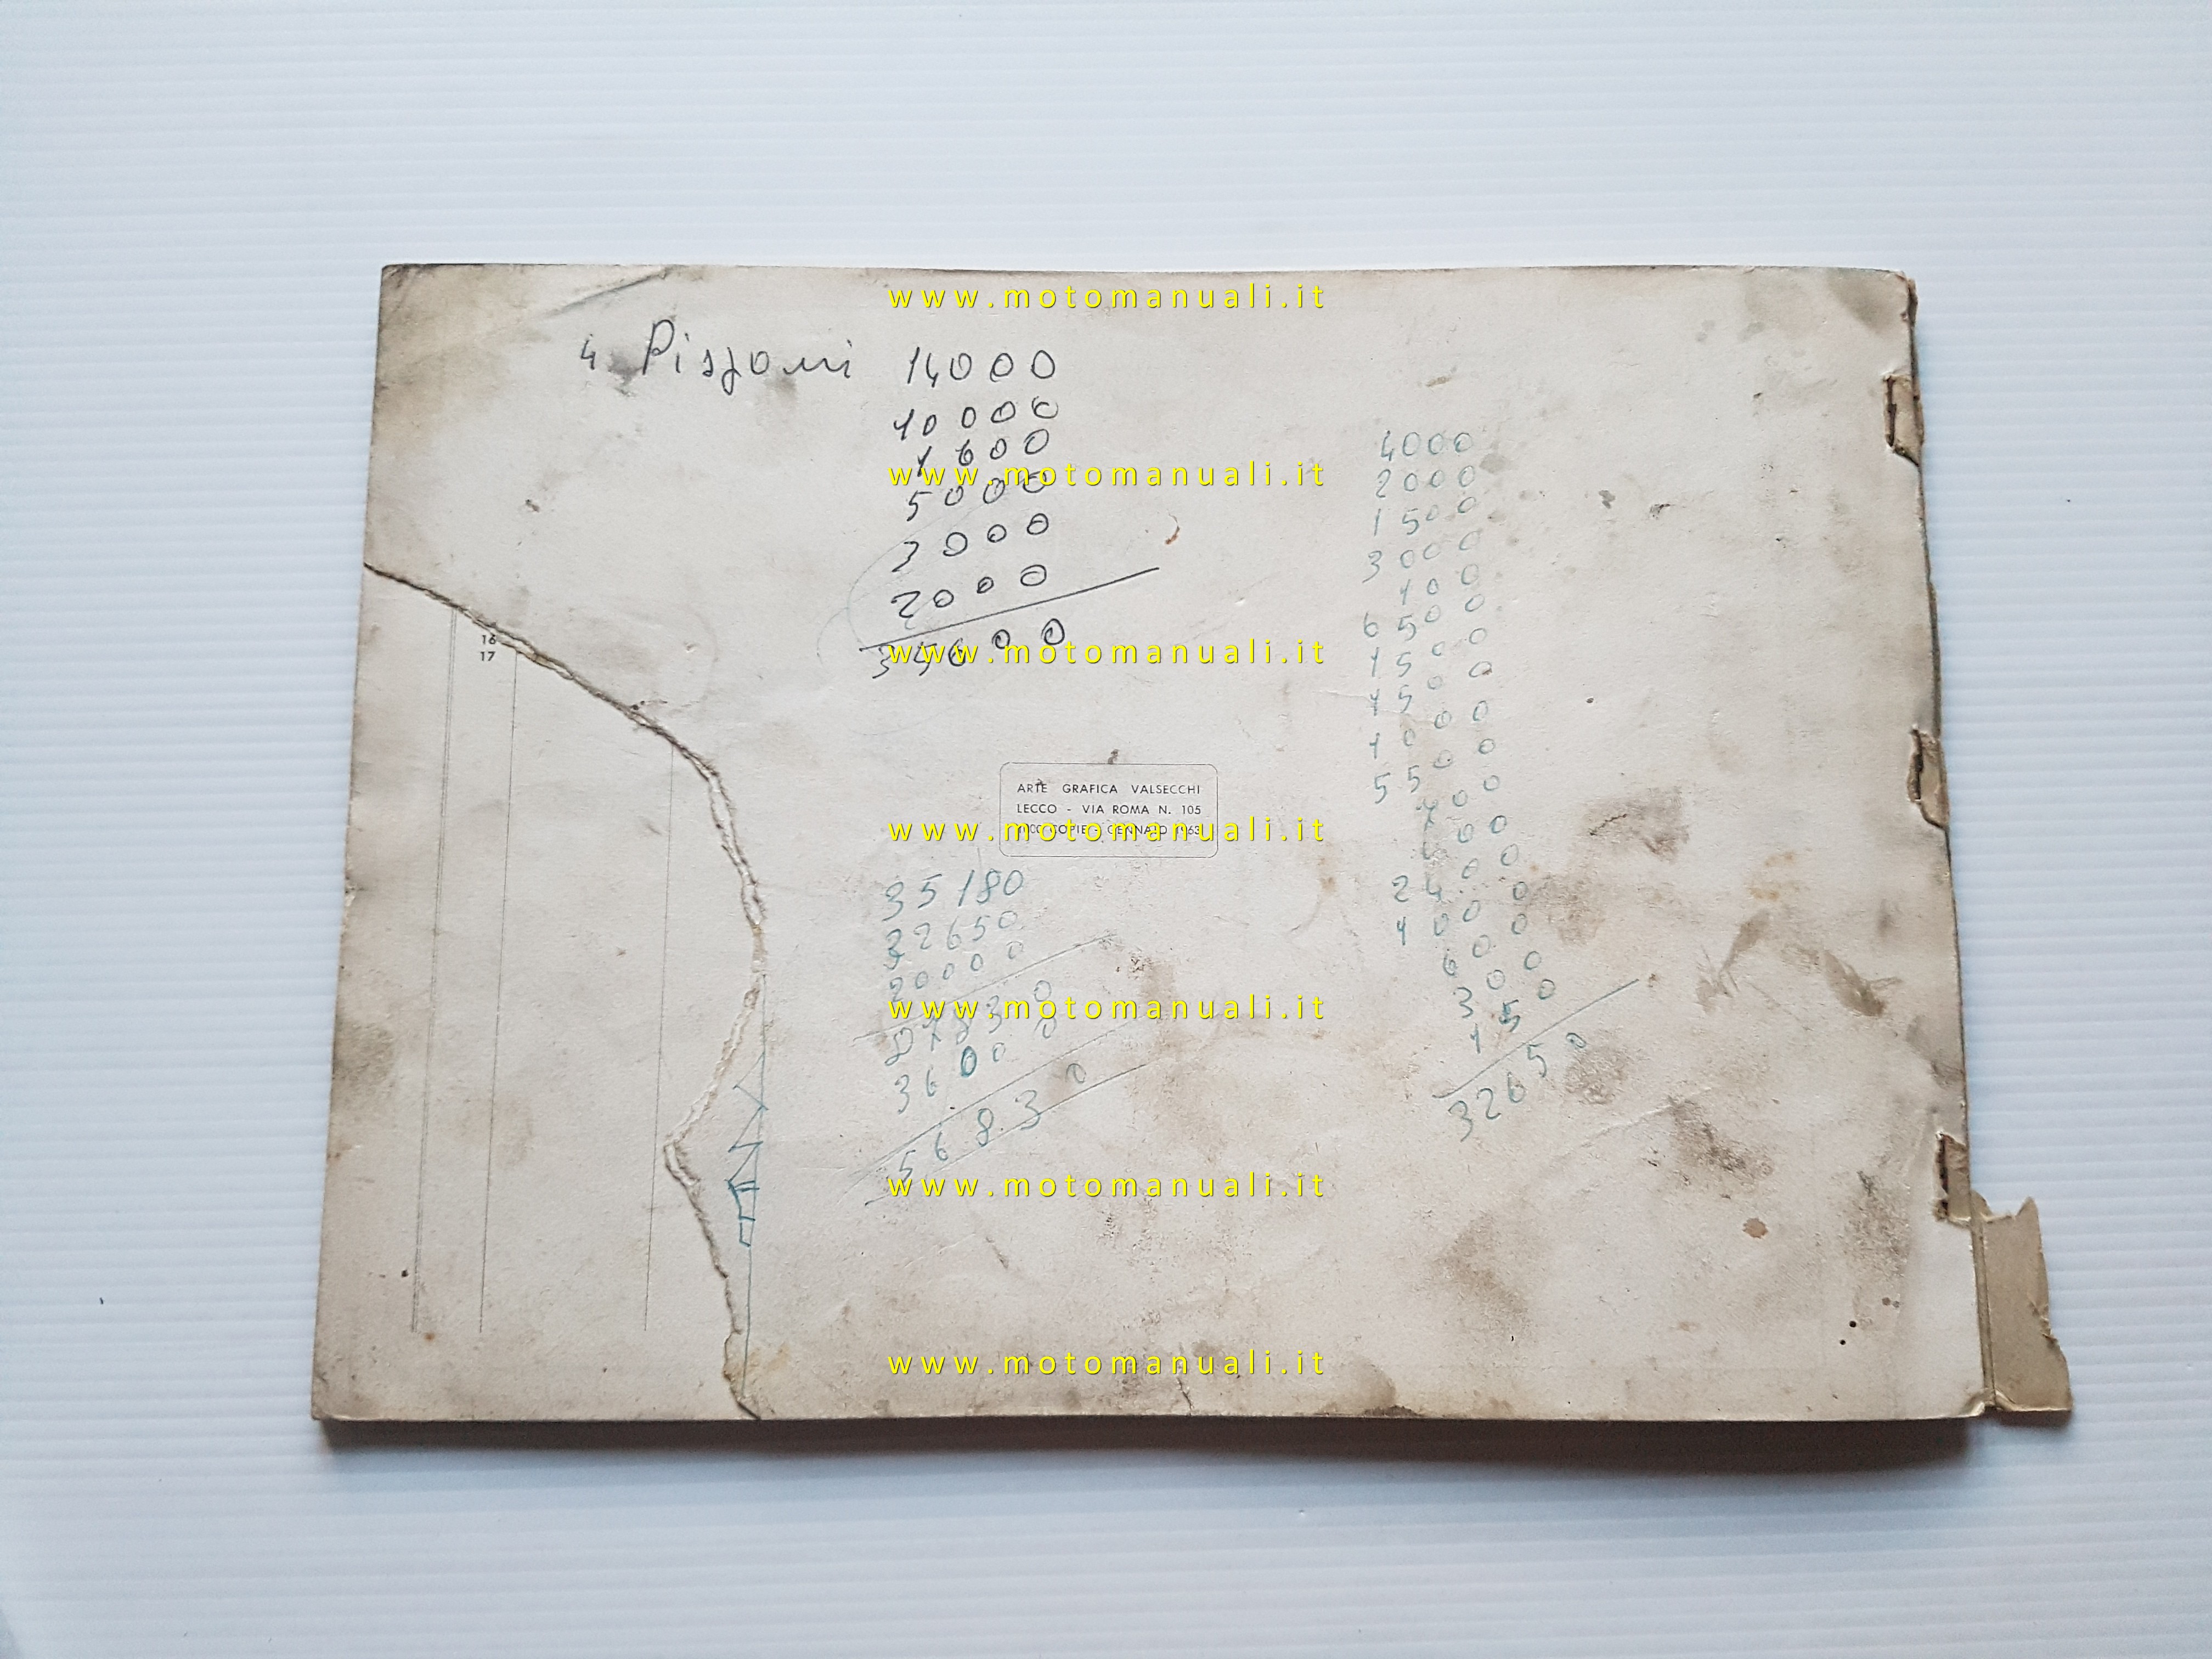 www.motomanuali.it
4 Pistoni 14000
10000
1600
www.motomanuali.it
5000
3000
2000
35600
www.motomanuali.it
16
17
4000
2000
1500
3000
100
6500
1500
1500
1000
5500
ARTE GRAFICA VALSECCHI
LECCO - VIA ROMA N. 105
COPIE - GENNAIO 1963
www.motomanuali.it
2400
1000
600
300
150
32650
35180
32650
20000
www.motomanuali.it
87830
36000
56830
www.motomanuali.it
www.motomanuali.it